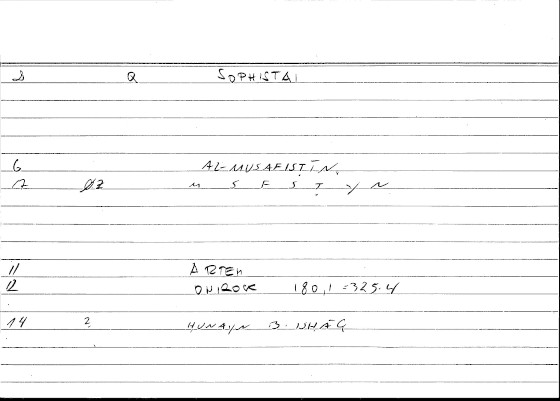 Q SOPHISTAI
6 AL-MUSAFISṬĪN.
7 M S F S Ṭ Y N
11 ARTEM
12 ONIROCR 180,1 = 325.4
14 2 HUNAYN B. ISHĀQ